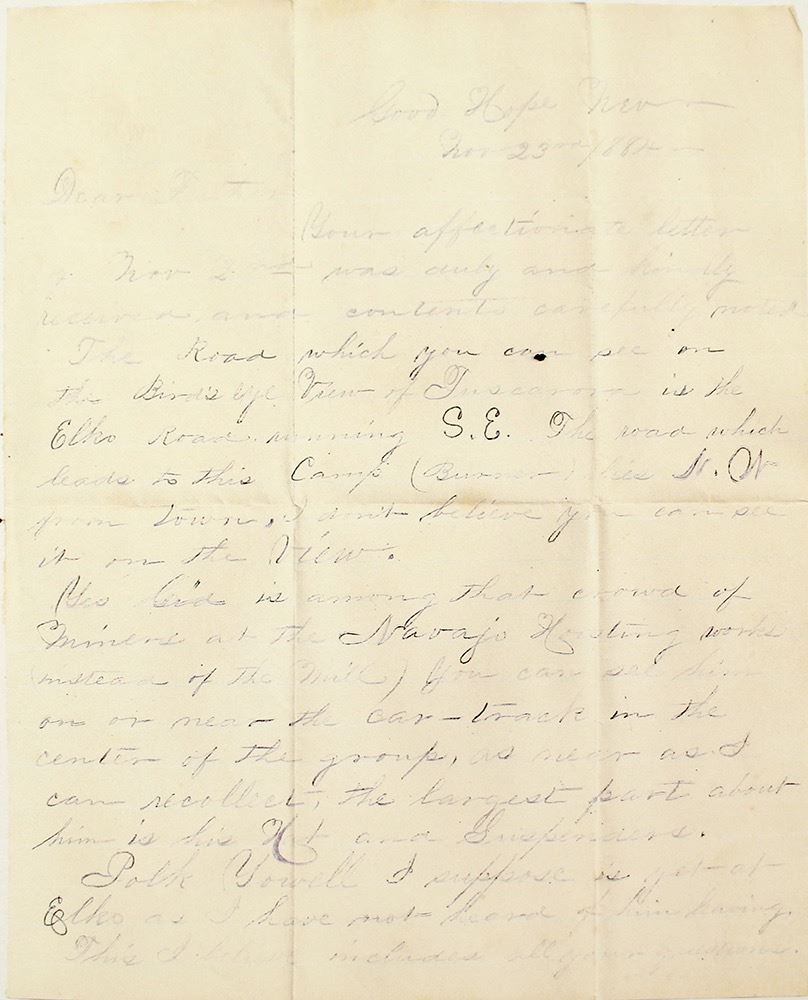 Good Hope Nev
Nov 23rd 188
Dear
Your affectionate letter
of Nov 2nd was duly and kindly
received and contents carefully noted
The Road which you can see on
the Birds eye View of Tuscarora is the
Elko Road running S.E. The road which
leads to this Camp (Burner) lies N. W
from town, I dont believe you can see
it on the View.
Yes is among that crowd of
Miners at the Navajo Hoisting works
(instead of the Mill) You can see him
on or near the car-track in the
center of the group, as near as I
can recollect, the largest part about
him is his Hat and Suspenders.
Polk Yowell I suppose is yet at
Elko as I have not heard of him leaving.
This I believe includes all your questions.